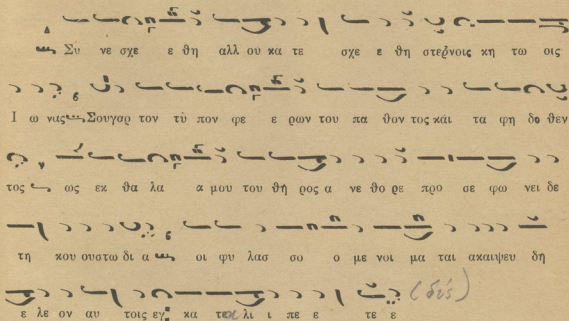 Συ νε σχε ε θη αλλ ου κα τε σχε ε θη στερνοις κη τω οις
Ι ω νας Σουγαρ τον τὺ πον φε ε ρων του πα θον τος κάι τα φη δο θεν
τος ως εκ θα λα α μου του θή ρος α νε θο ρε προ σε φω νει δε
τη κου ουστω δι α οι φυ λασ σο ο με νοι μα ται ακαιψευ δη
ε λε ον αυ τοις εγ κα τε λι ι πε ε τε ε (δίς)